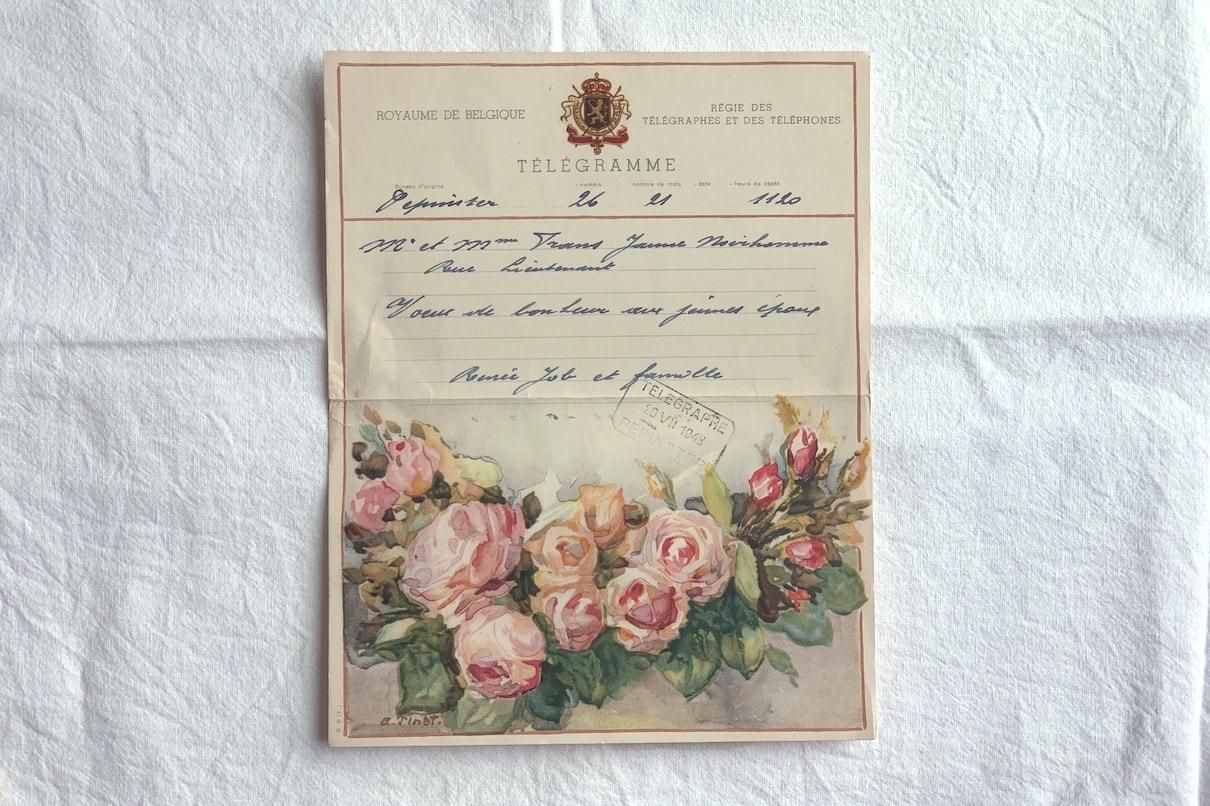 ROYAUME DE BELGIQUE
RÉGIE DES
TÉLÉGRAPHES ET DES TÉLÉPHONES
TÉLÉGRAMME
Bureau d'origine - numéro - nombre de mots - date - heure de dépôt
Pepinster 26 21 1120
Mr et Mme Frans Jamme Noirhomme
Rue Lieutenant
Voeux de bonheur aux jeunes époux
Renée Job et famille
TELEGRAPHE
VII 1948